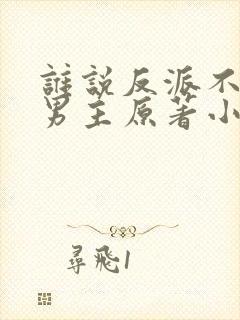 誰說反派不
男主原著小
尋飛1